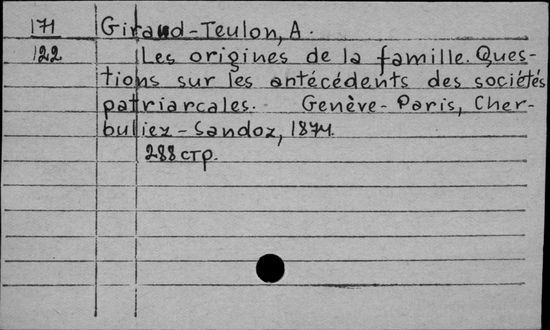 171 Giraud-Teulon, A.
122 Les origines de la famille. Ques-
tions sur les antécédents des sociétés
patriarcales. Genève-Paris, Cher-
buliez-Sandoz, 1874.
288 стр.